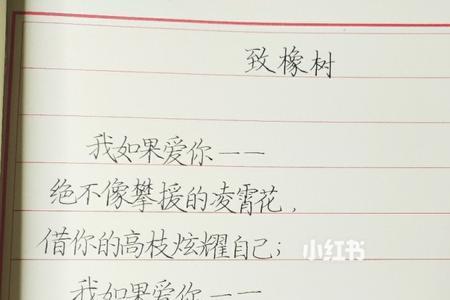 致橡树
我如果爱你——
绝不像攀援的凌霄花，
借你的高枝炫耀自己；
小红书
我如果爱你——